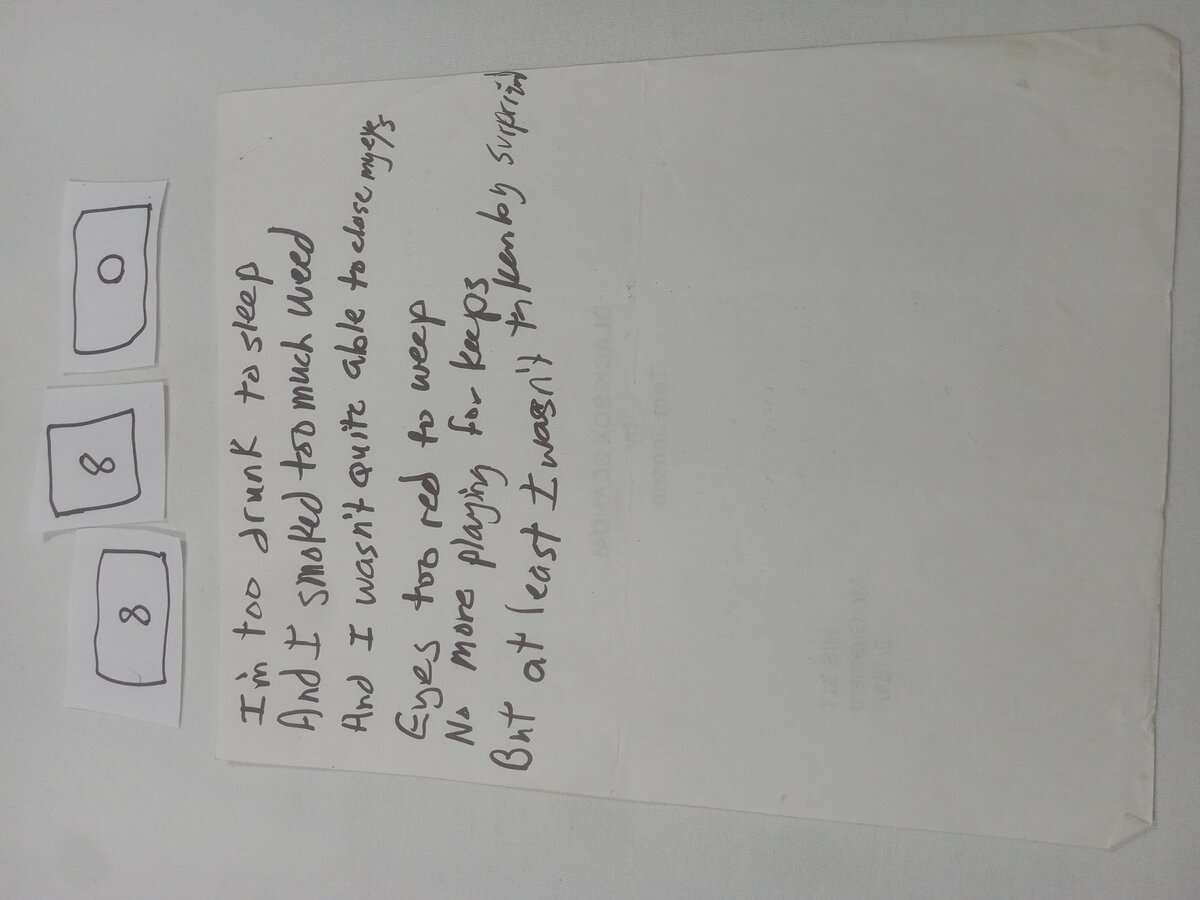 8 8 0
I'm too drunk to sleep
And I smoked too much weed
And I wasn't quite able to close my eyes
Eyes too red to weep
No more playing for keeps
But at least I wasn't taken by
BLACK SOX SCANDAL
by